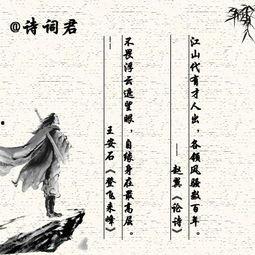 @诗词君
江山代有才人出，各领风骚数百年。
——赵翼《论诗》
不畏浮云遮望眼，自缘身在最高层。
——王安石《登飞来峰》